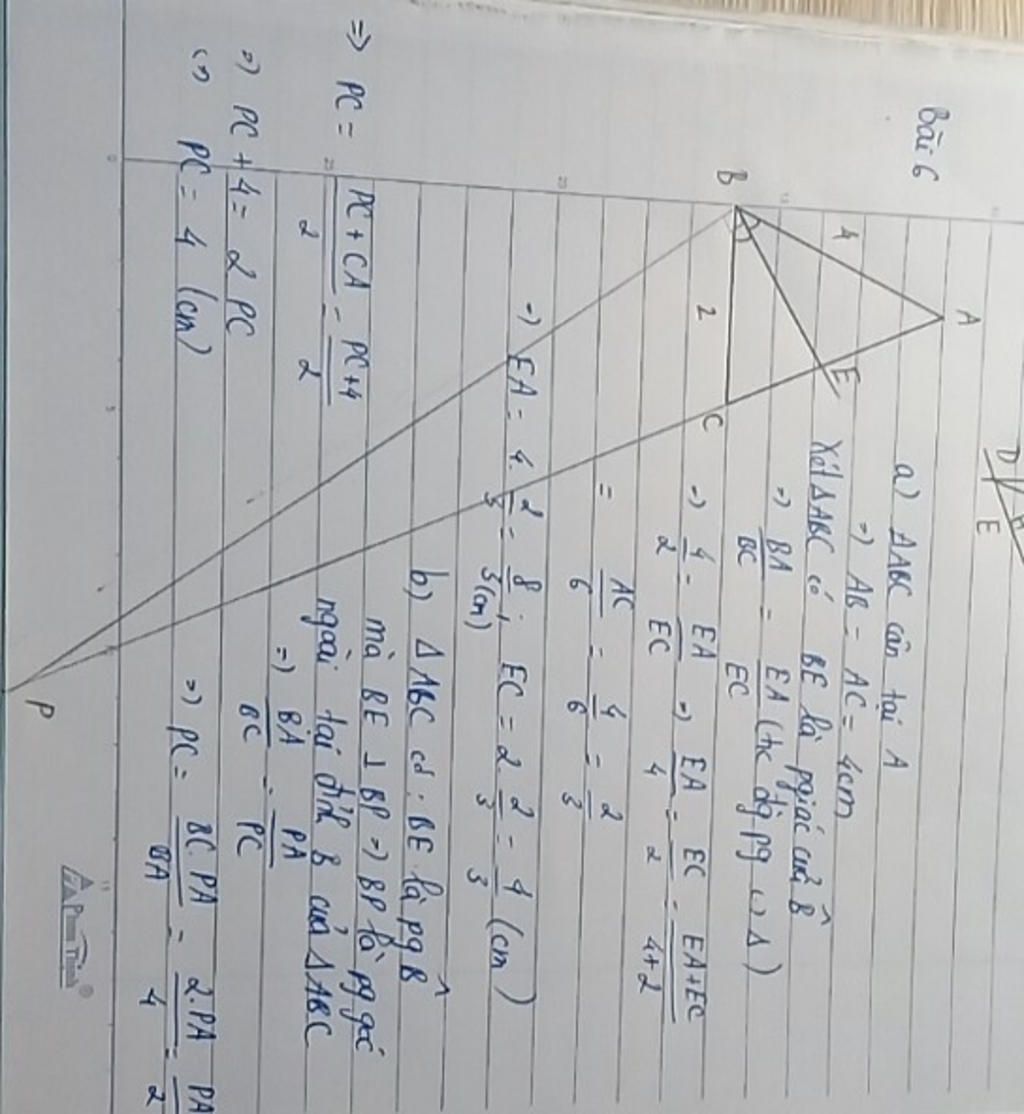 Bài 6
A
B
4
E
2
C
P
D
E
a) ΔABC cân tại A
=> AB = AC = 4cm
Xét ΔABC có BE là pgiác của B̂
=> BA/BC = EA/EC (t/c đg pg Δ)
=> 4/2 = EA/EC => EA/4 = EC/2 = EA+EC/4+2
= AC/6 = 4/6 = 2/3
=> EA = 4. 2/3 = 8/3 (cm); EC = 2. 2/3 = 4/3 (cm)
b) ΔABC có: BE là pg B̂
mà BE ⊥ BP => BP là pg góc
ngoài tại đỉnh B của ΔABC
=> BA/BC = PA/PC
=> PC = BC.PA/BA = 2.PA/4 = PA/2
=> PC = PC + CA/2 = PC+4/2
=> PC + 4 = 2 PC
(=) PC = 4 (cm)
Phan Thịnh®